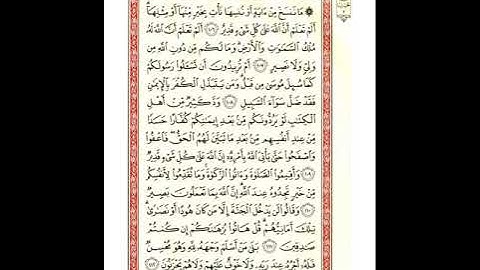 ۞ مَا نَنسَخْ مِنْ ءَايَةٍ أَوْ نُنسِهَا نَأْتِ بِخَيْرٍ مِّنْهَآ أَوْ مِثْلِهَآ
أَلَمْ تَعْلَمْ أَنَّ ٱللَّهَ عَلَىٰ كُلِّ شَىْءٍ قَدِيرٌ ١٠٦ أَلَمْ تَعْلَمْ أَنَّ ٱللَّهَ لَهُۥ
مُلْكُ ٱلسَّمَٰوَٰتِ وَٱلْأَرْضِ وَمَا لَكُم مِّن دُونِ ٱللَّهِ مِن
وَلِىٍّ وَلَا نَصِيرٍ ١٠٧ أَمْ تُرِيدُونَ أَن تَسْـَٔلُوا۟ رَسُولَكُمْ
كَمَا سُئِلَ مُوسَىٰ مِن قَبْلُ وَمَن يَتَبَدَّلِ ٱلْكُفْرَ بِٱلْإِيمَٰنِ
فَقَدْ ضَلَّ سَوَآءَ ٱلسَّبِيلِ ١٠٨ وَدَّ كَثِيرٌ مِّنْ أَهْلِ
ٱلْكِتَٰبِ لَوْ يَرُدُّونَكُم مِّنۢ بَعْدِ إِيمَٰنِكُمْ كُفَّارًا حَسَدًا
مِّنْ عِندِ أَنفُسِهِم مِّنۢ بَعْدِ مَا تَبَيَّنَ لَهُمُ ٱلْحَقُّ فَٱعْفُوا۟
وَٱصْفَحُوا۟ حَتَّىٰ يَأْتِىَ ٱللَّهُ بِأَمْرِهِۦٓ إِنَّ ٱللَّهَ عَلَىٰ كُلِّ شَىْءٍ قَدِيرٌ
١٠٩ وَأَقِيمُوا۟ ٱلصَّلَوٰةَ وَءَاتُوا۟ ٱلزَّكَوٰةَ وَمَا تُقَدِّمُوا۟ لِأَنفُسِكُم
مِّنْ خَيْرٍ تَجِدُوهُ عِندَ ٱللَّهِ إِنَّ ٱللَّهَ بِمَا تَعْمَلُونَ بَصِيرٌ
١١٠ وَقَالُوا۟ لَن يَدْخُلَ ٱلْجَنَّةَ إِلَّا مَن كَانَ هُودًا أَوْ نَصَٰرَىٰ
تِلْكَ أَمَانِيُّهُمْ قُلْ هَاتُوا۟ بُرْهَٰنَكُمْ إِن كُنتُمْ
صَٰدِقِينَ ١١١ بَلَىٰ مَنْ أَسْلَمَ وَجْهَهُۥ لِلَّهِ وَهُوَ مُحْسِنٌ
فَلَهُۥٓ أَجْرُهُۥ عِندَ رَبِّهِۦ وَلَا خَوْفٌ عَلَيْهِمْ وَلَا هُمْ يَحْزَنُونَ ١١٢